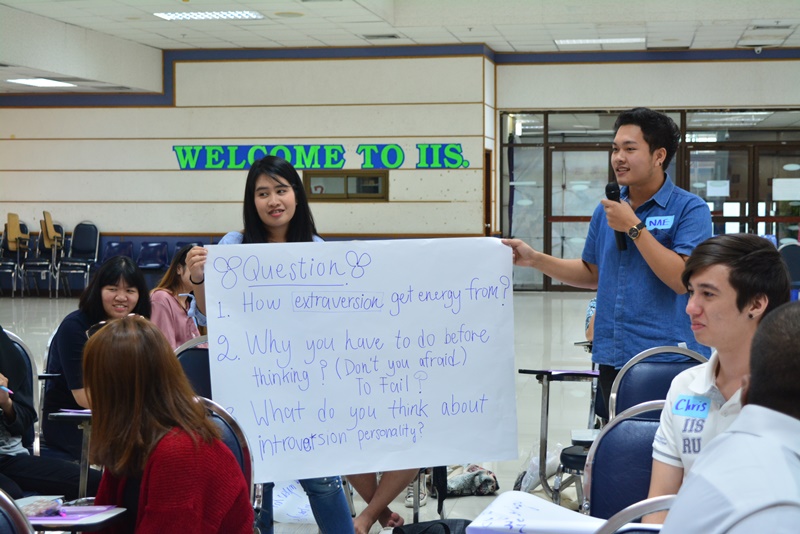 WELCOME TO IIS.
Question
1. How extraversion get energy from?
2. Why you have to do before
thinking? (Don't you afraid)
To Fail?
What do you think about
introversion personality?
NAE
Chris
IIS
RU